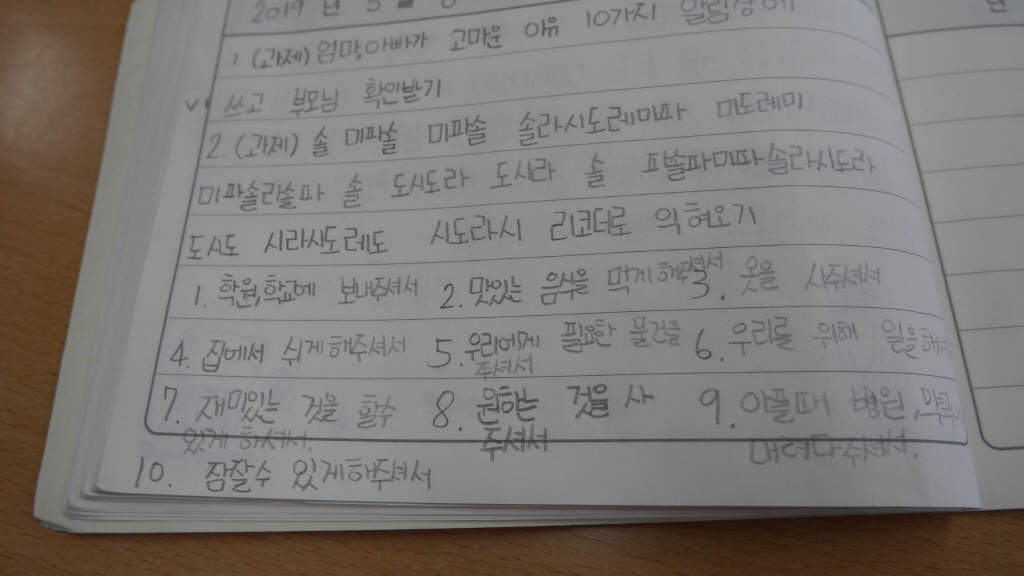 2019 년 5 월
1. (과제) 엄마,아빠가 고마운 이유 10가지 알림장에
쓰고 부모님 확인받기
2. (과제) 솔 미파솔 미파솔 솔라시도레미파 미도레미
미파솔라솔파 솔 도시도라 도시라 솔 파솔파미파솔라시도라
도시도 시라시도레도 시도라시 리코더로 익혀오기
1. 학원,학교에 보내주셔서 2. 맛있는 음식을 먹게 해주셔서 3. 옷을 사주셔서
4. 집에서 쉬게해주셔서 5. 우리에게 필요한 물건을 주셔서 6. 우리를 위해 일을해서
7. 재미있는 것을 할수 있게 하셔서. 8. 원하는 것을 사 주셔서 9. 아플때 병원,약국 데려다주셔서.
10. 잠잘수 있게해주셔서
년